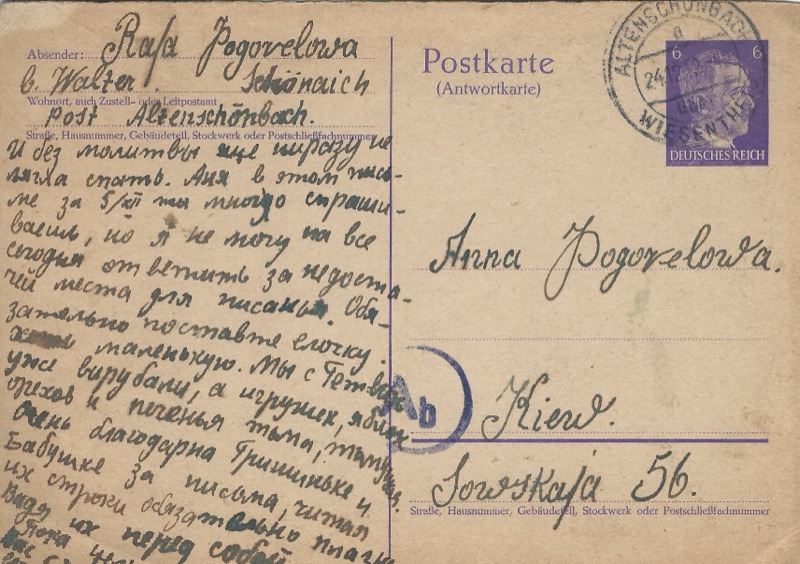 Absender: Rafa Pogorelowa
b. Walter. Schönaich
Wohnort, auch Zustell- oder Leitpostamt
Post Altenschönbach.
Straße, Hausnummer, Gebäudeteil, Stockwerk oder Postschließfachnummer
И без молитвы еще ниразу не
лягла спать. Аня в этом пись-
ме за 5/XII ты много спраши-
ваеш, но я не могу на все
сегодня ответить за недоста-
чей места для писанья. Обя-
зательно поставте елочку.
маленькую. Мы с
уже вирубали, а игрушек, яблок
орехов и печенья тьма,
очень благодарна Гришиньке и
Бабушке за письма, читая
их строки обязательно
Видя их перед собой
Пока
Postkarte
(Antwortkarte)
ALTENSCHÖNBACH
a
24.12.
über
WIESENTHEID
6 6
DEUTSCHES REICH
Anna Pogorelowa.
Ab
Kiew.
Sowskaja 56.
Straße, Hausnummer, Gebäudeteil, Stockwerk oder Postschließfachnummer